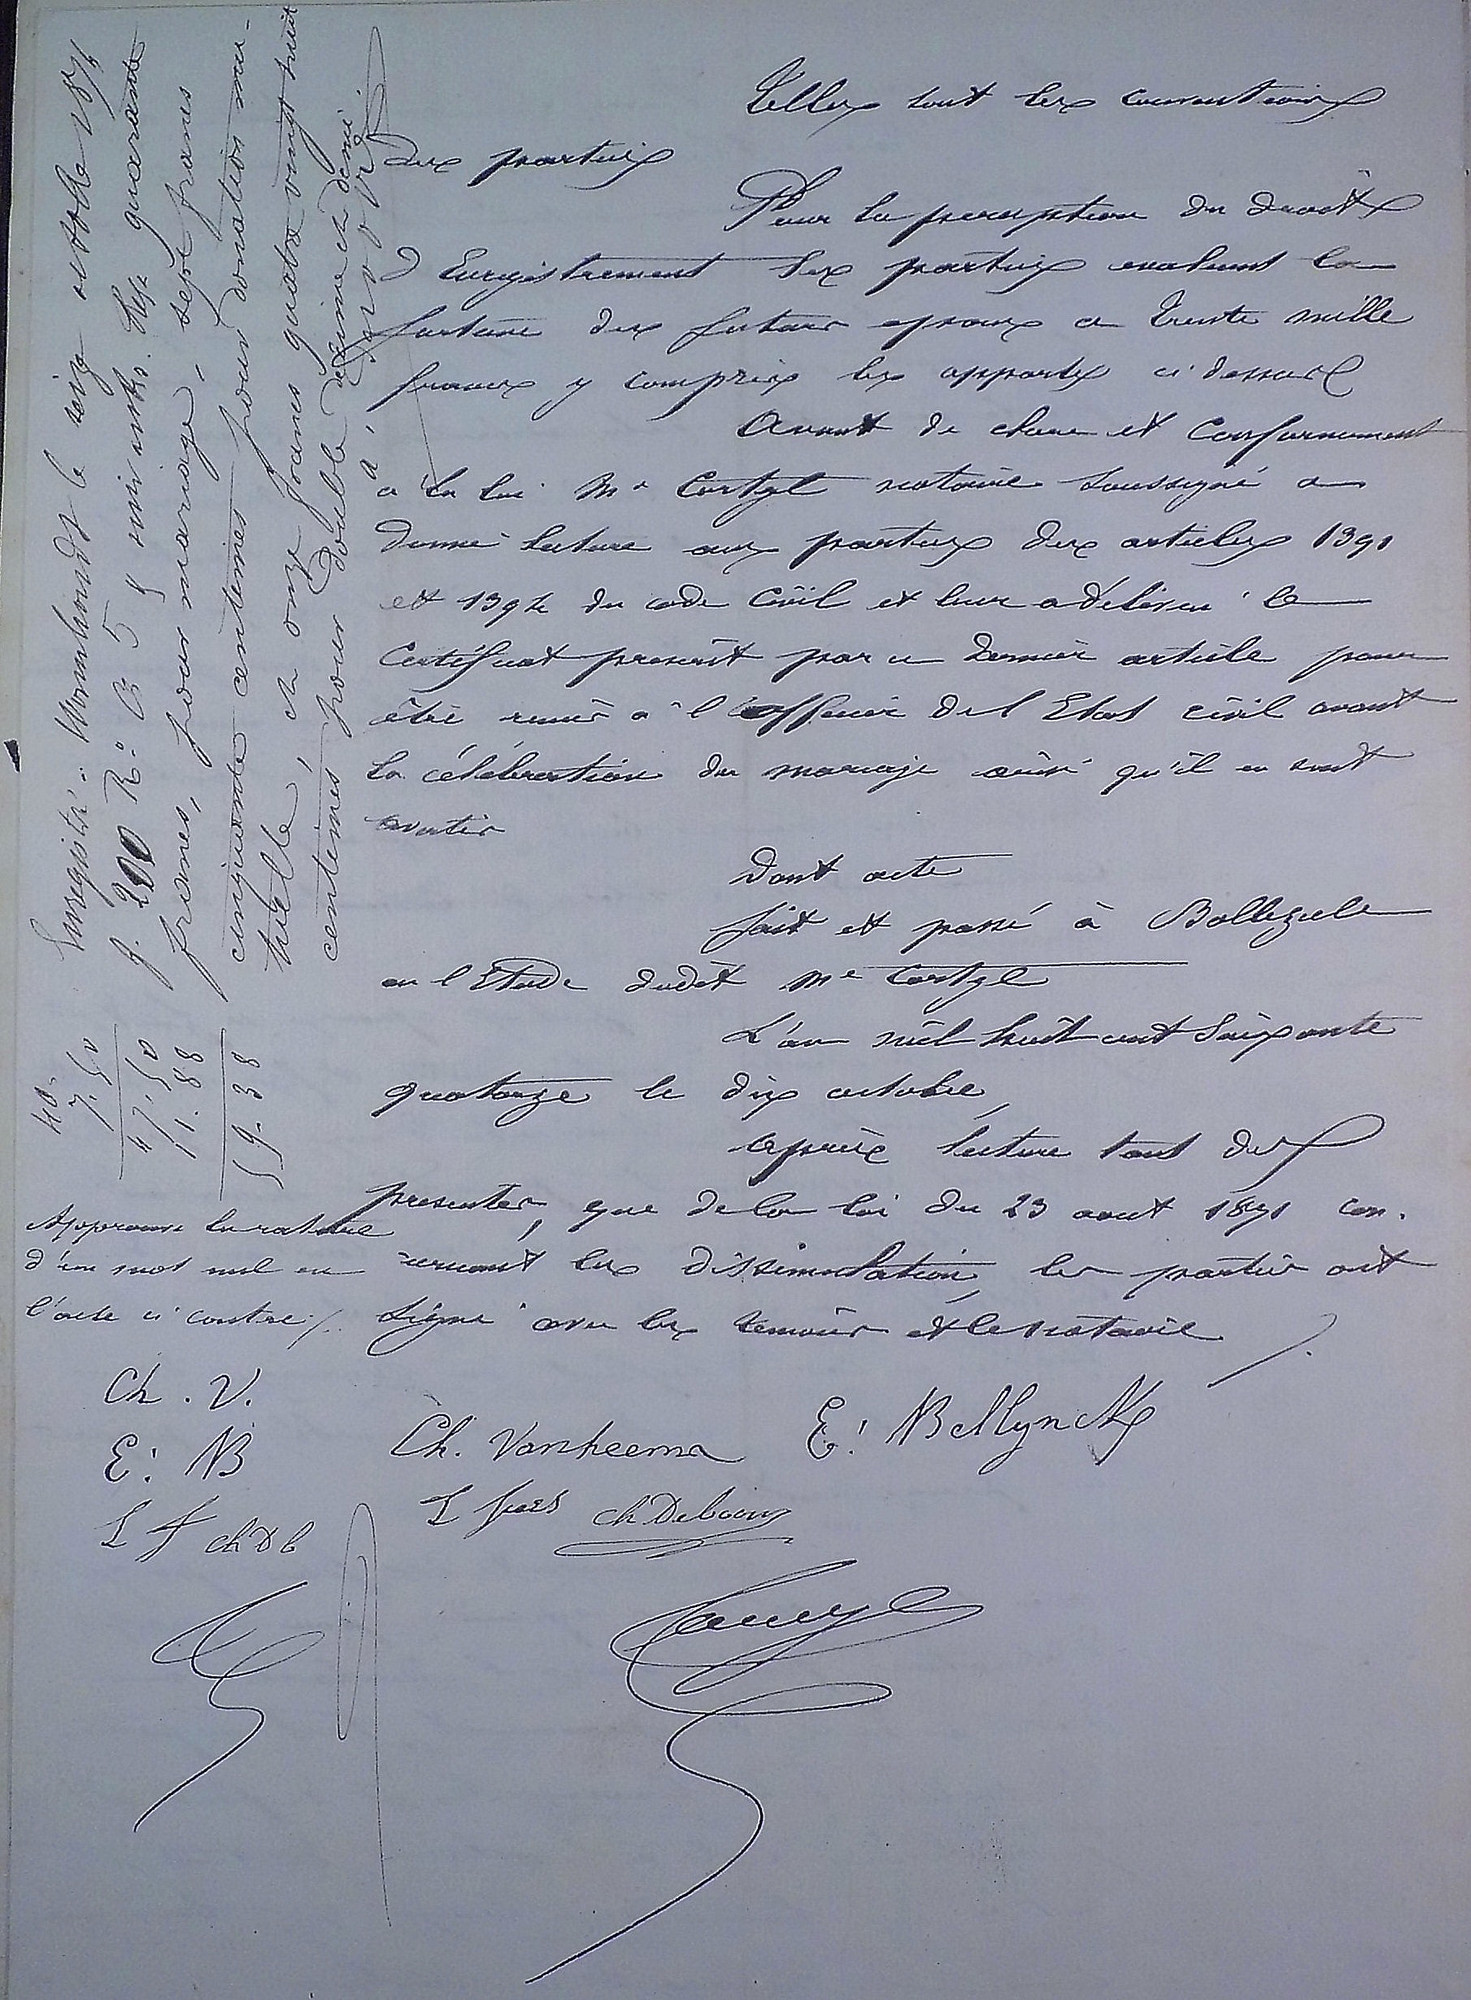 Telles sont les conventions
des parties
Pour la perception du droit
d'Enregistrement les parties evaluent la
fortune des futurs epoux a Trente mille
francs y compris les apports ci dessus
Avant de clore et Conformement
a la loi Me Cortyl notaire soussigné a
donné lecture aux parties des articles 1391
et 1394 du code Civil et leur a délivré le
Certificat prescrit par ce dernier article pour
être remis a l'officier de l'Etat civil avant
la célébration du mariage ainsi qu'il en sont
avertis
Dont acte
fait et passé à Bollezeele
en l'Etude dudit Me Cortyl
L'an mil huit cent Soixante
quatorze le dix octobre,
Après lecture tant des
presentes, que de la loi du 23 aout 1871 con.
cernant les dissimulation, les parties ont
signé avec les temoins et le notaire
Ch. Vanheema E: Bellynck
L fues ch Debaony
Enregistré à Wormhoudt le seize octobre 1874
f. 200 Ro C 5 & suivants. Reçu quarante
francs, pour mariage, sept francs
cinquante centimes pour donation mu-
tuelle, et onze francs quatre vingt huit
centimes pour double décime et demi.
40.
7.50
47.50
11.88
59.38
Approuvé la rature
d'un mot nul en
l'acte ci contre ./.
Ch. V.
E: B
L f ch D b